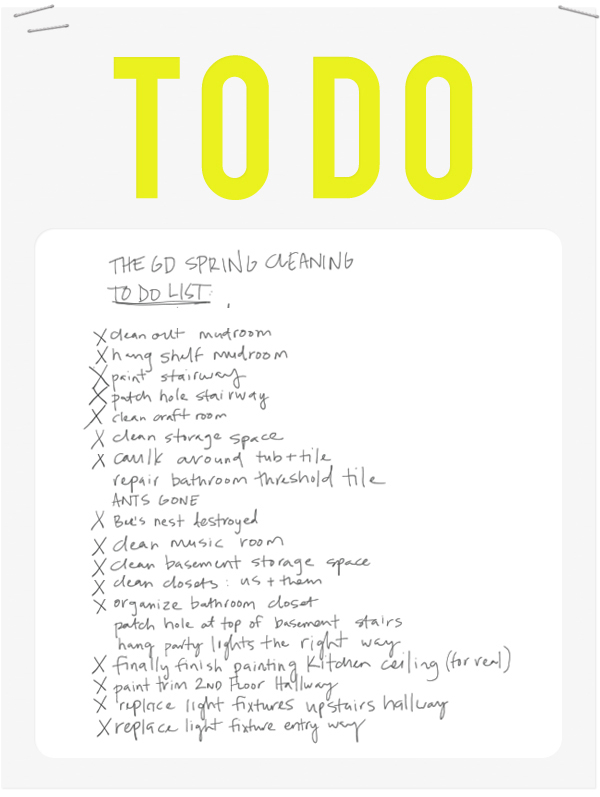 TO DO
THE GD SPRING CLEANING
TO DO LIST:
X clean out mudroom
X hang shelf mudroom
X paint stairway
X patch hole stairway
X clean craft room
X clean storage space
X caulk around tub + tile
repair bathroom threshold tile
ANTS GONE
X Bee's nest destroyed
X clean music room
X clean basement storage space
X clean closets: us + them
X organize bathroom closet
patch hole at top of basement stairs
hang party lights the right way
X finally finish painting kitchen ceiling (for real)
X paint trim 2ND Floor Hallway
X replace light fixtures upstairs hallway
X replace light fixture entry way